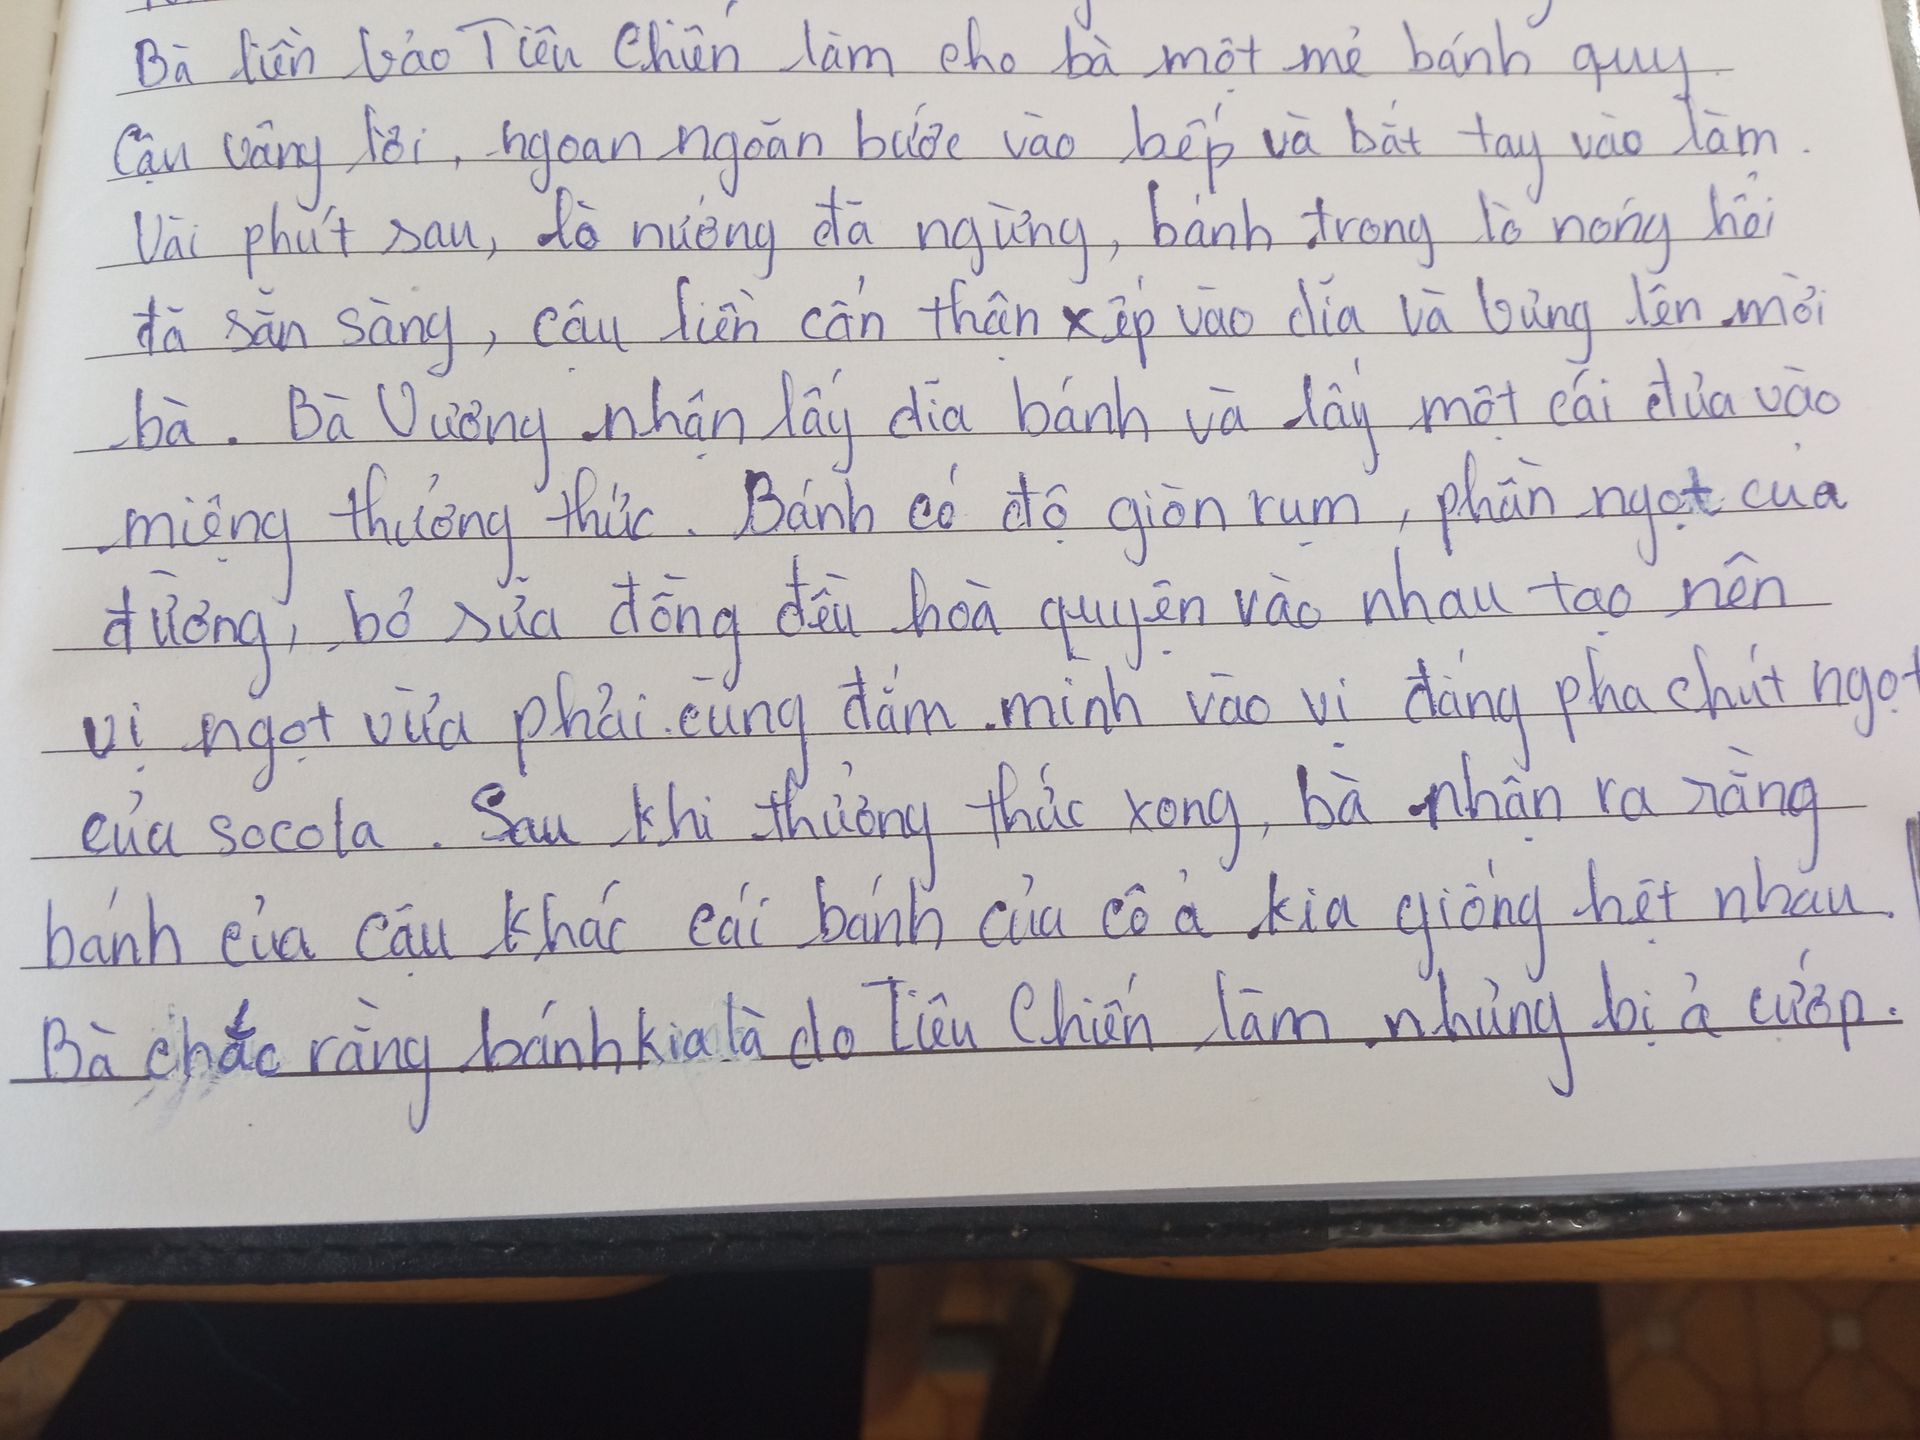 Bà liền bảo Tiêu Chiến làm cho bà một mẻ bánh quy
Cậu vâng lời, ngoan ngoãn bước vào bếp và bắt tay vào làm.
Vài phút sau, lò nướng đã ngừng, bánh trong lò nóng hổi
đã sẵn sàng, cậu liền cẩn thận xếp vào dĩa và bưng lên mời
bà. Bà Vương nhận lấy dĩa bánh và lấy một cái đưa vào
miệng thưởng thức. Bánh có độ giòn rụm, phần ngọt của
đường, bơ sữa đồng đều hoà quyện vào nhau tạo nên
vị ngọt vừa phải cùng đắm mình vào vị đắng pha chút ngọt
của socola. Sau khi thưởng thức xong, bà nhận ra rằng
bánh của cậu khác cái bánh của cô ả kia giống hệt nhau.
Bà chắc rằng bánh kia là do Tiêu Chiến làm nhưng bị ả cướp.